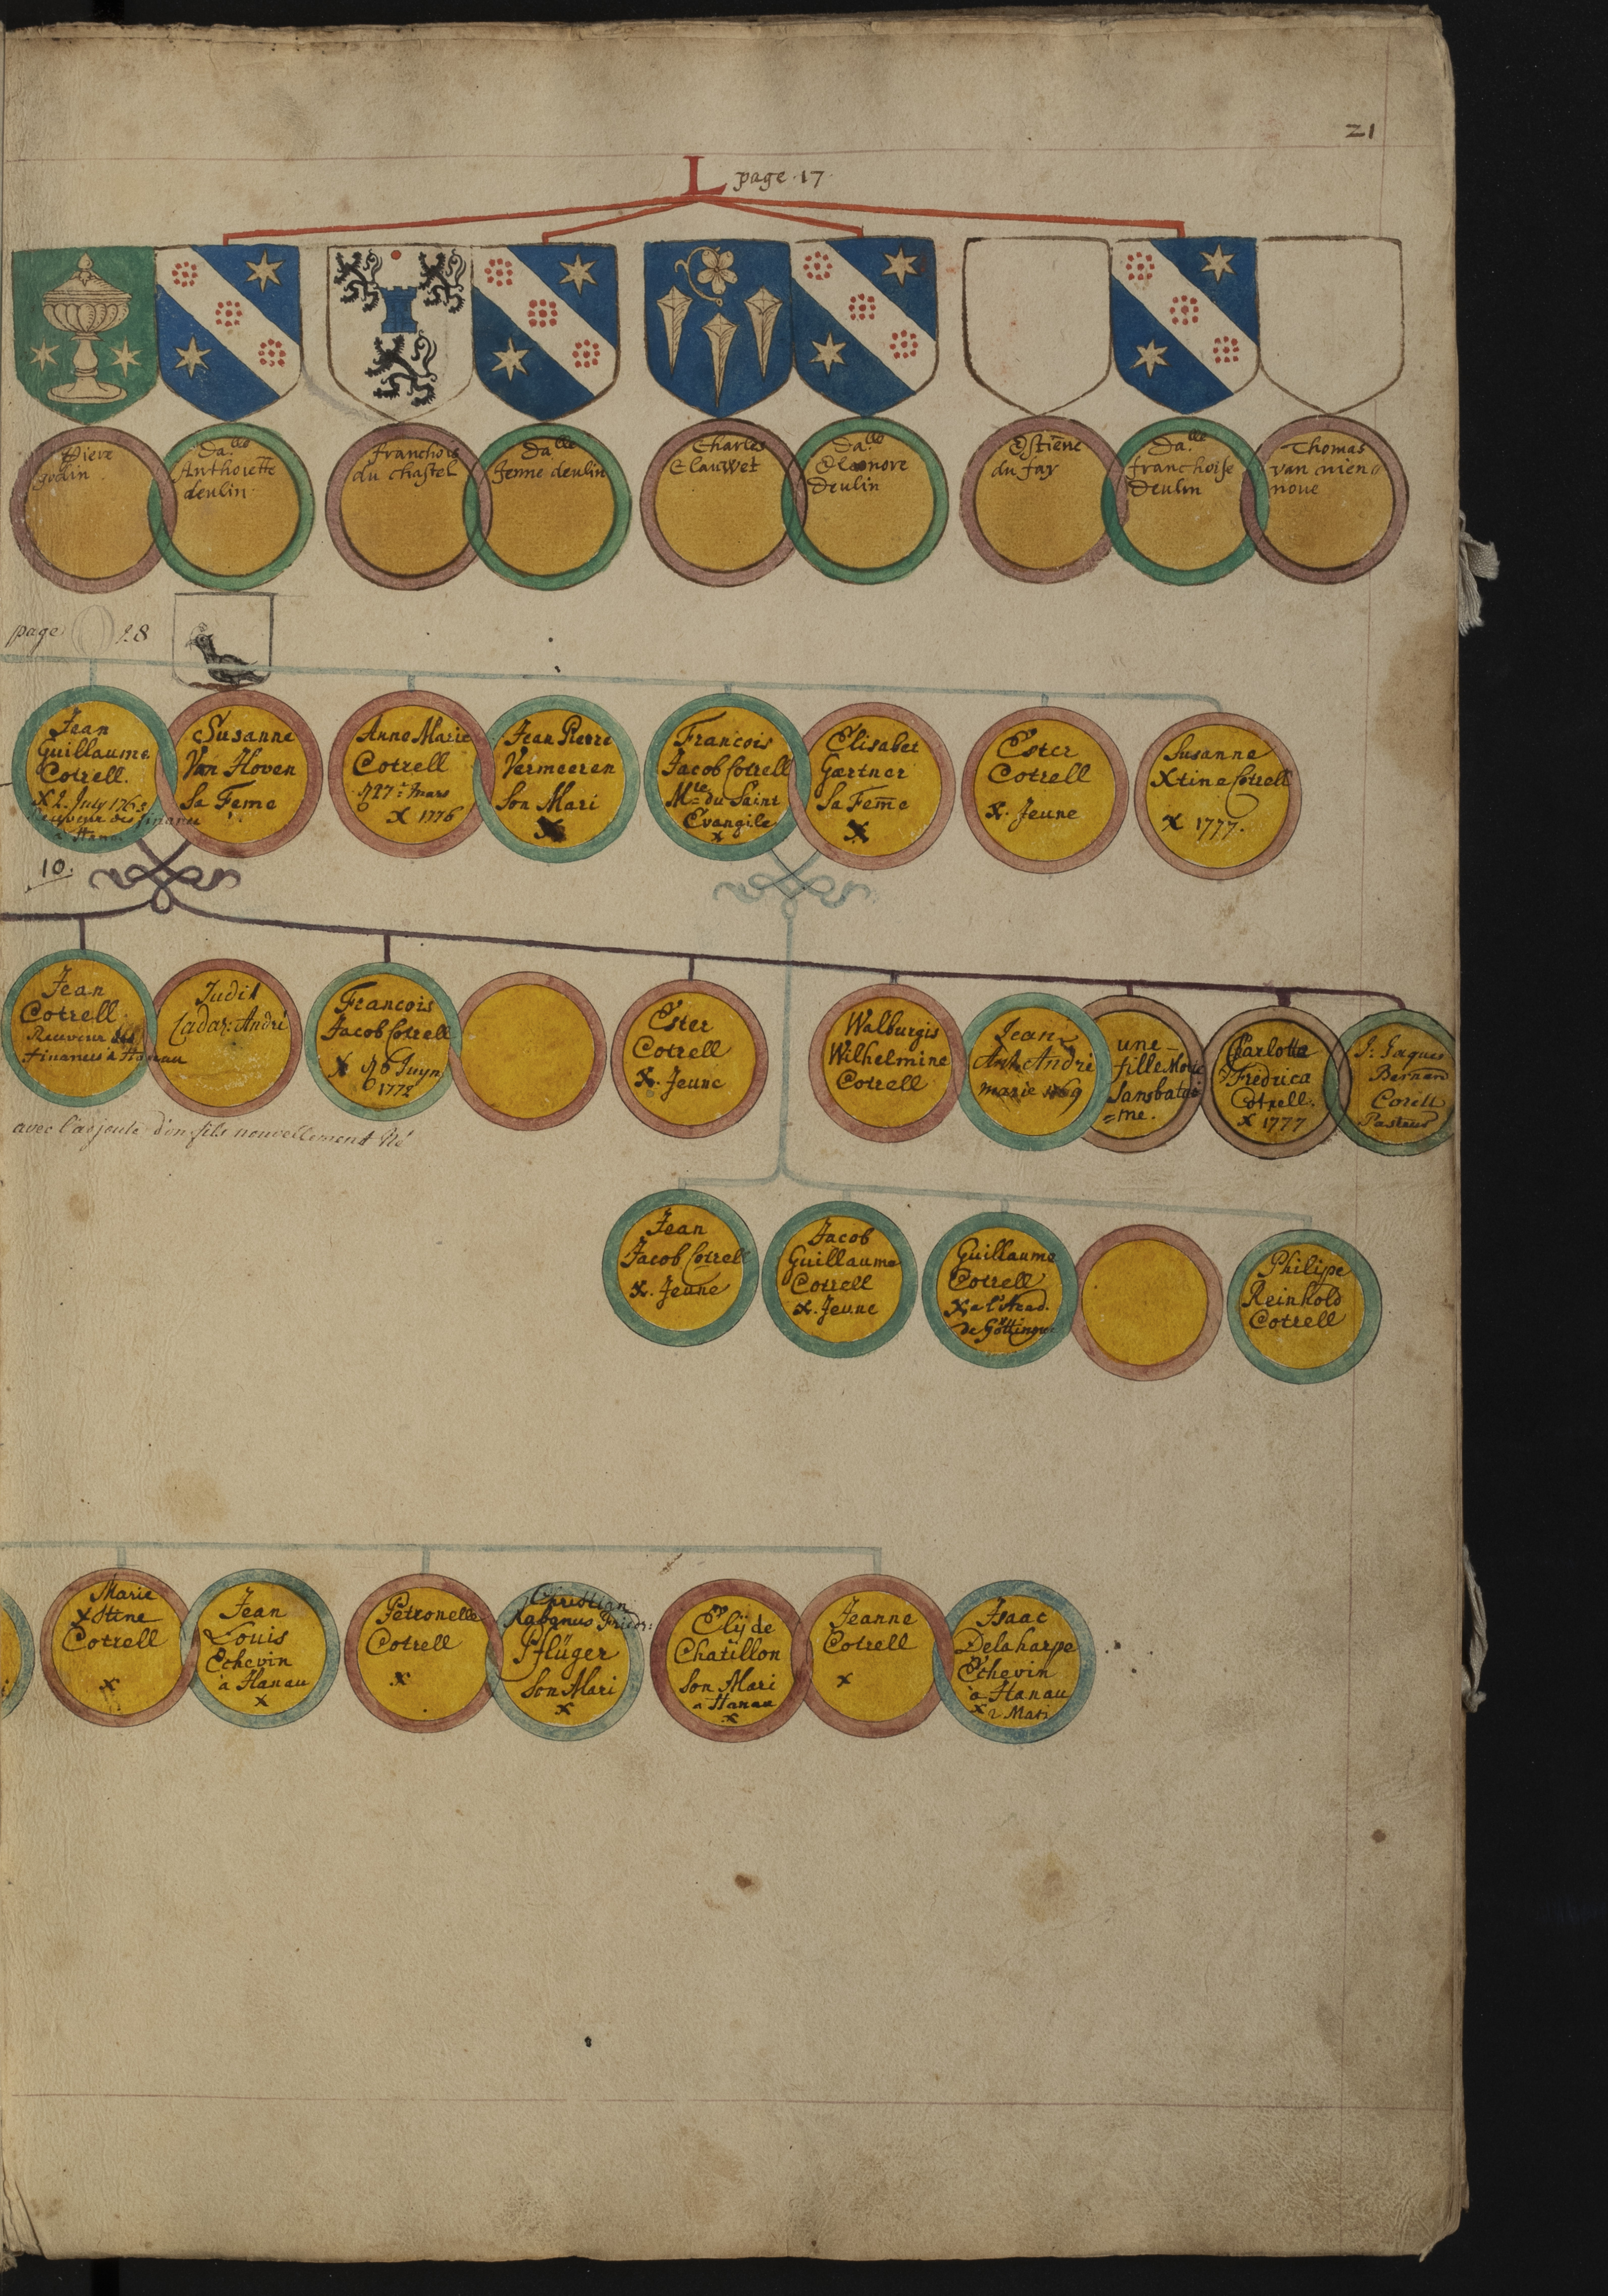 21
L page 17.
Piere
godin
Da.lle
Anthoiette
deulin
franchois
du chastel
Da.lle
Jenne deulin
Charles
Clauwet
Da.lle
Eleonore
Deulin
Estiene
du fay
Da.lle
franchoise
Deulin
Thomas
van nien
noue
page 28
Jean
Guillaume
Cotrell.
X 2. July 1763
Receveur des finances
a Hanau
Susanne
Van Hoven
Sa Feme
Anne Marie
Cotrell
27e Mars
X 1776
Jean Pierre
Vermeeren
Son Mari
X
Francois
Jacob Cotrell
Mtre du Saint
Evangile
x
Elisabet
Gærtner
Sa Feme
X
Ester
Cotrell
X. Jeune
Susanne
Xtine Cotrell
X 1777.
10.
Jean
Cotrell
Receveur des
finances à Hanau
Judit
Cadar: André
Francois
Jacob Cotrell
X 6 Juyn
1772
Ester
Cotrell
X. Jeune
Walburgis
Wilhelmine
Cotrell
Jean
Ant. André
marie 1769
une
fille Morte
Sans batté
=me.
Charlotta
Fredrica
Cotrell.
X 1777
J: Jaques
Bernard
Corell
Pasteur
avec l'adjoute d'un fils nouvellement Né
Jean
Jacob Cotrell
X. Jeune
Jacob
Guillaume
Cotrell
X. Jeune
Guillaume
Cotrell
X a l'Acad.
de Göttingue
Philipe
Reinhold
Cotrell
Marie
Xstine
Cotrell
X
Jean
Louis
Echevin
à Hanau
X
Petronelle
Cotrell
X
Christian
Rabanus Fridr:
Pflüger
Son Mari
X
Elÿ de
Chatillon
Son Mari
a Hanau
X
Jeanne
Cotrell
X
Isaac
Delaharpe
Echevin
à Hanau
X 2 Mari